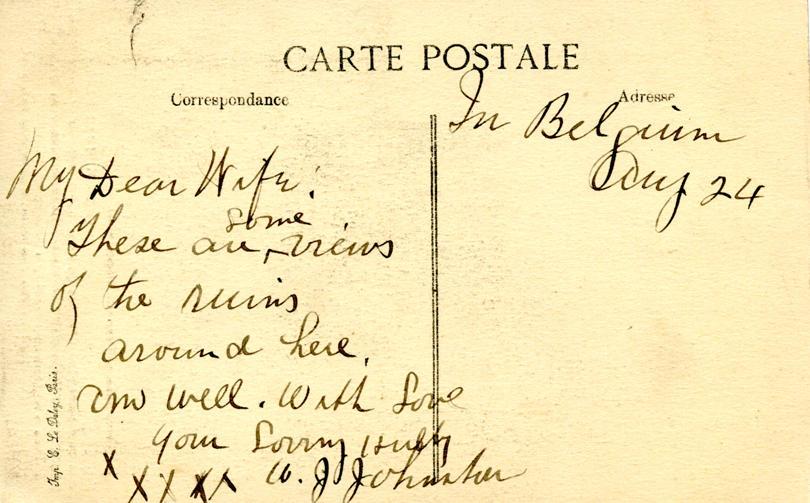 CARTE POSTALE
Correspondance
Adresse
In Belgium
Aug 24
My Dear Wife:
some
These are views
of the ruins
around here.
am well. With Love
your Loving Hubby
W. J. Johnston
X X X X X
Imp. E. Le Deley, Paris.